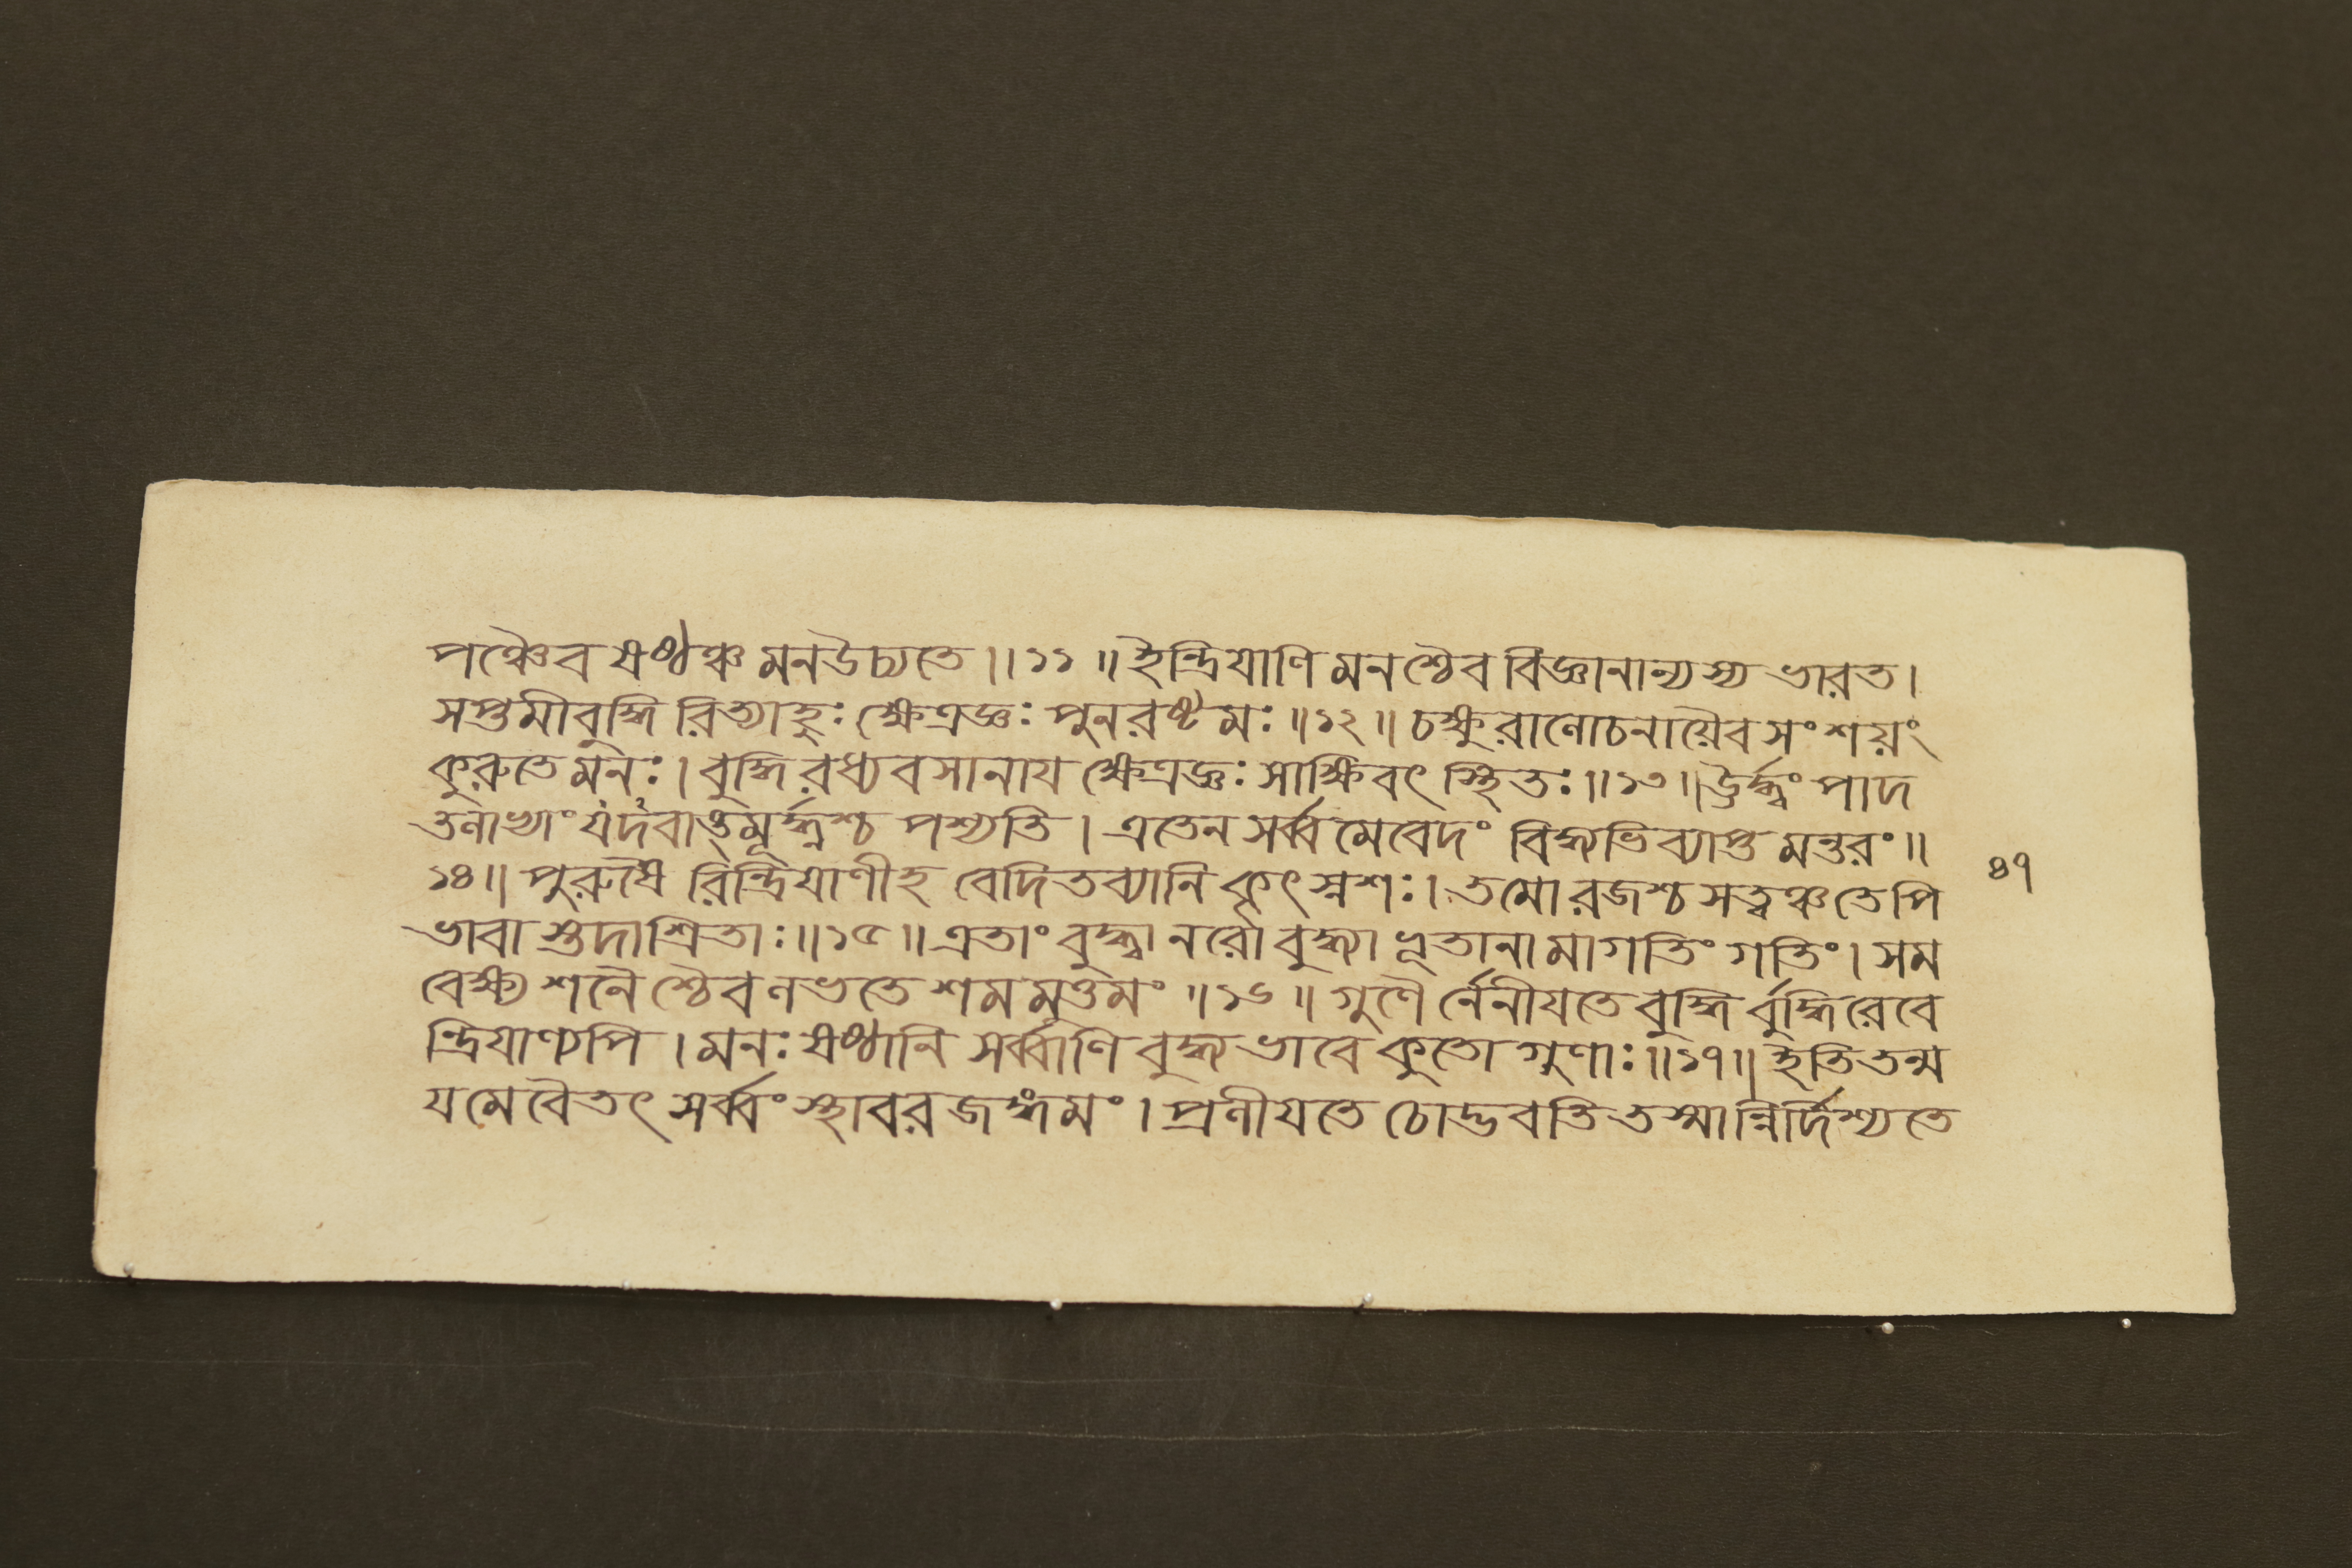 পঞ্চৈব ষষ্ঠঞ্চ মনউচ্যতে ॥ ১১ ॥ ইন্দ্রিযাণি মনশ্চৈব বিজ্ঞানান্যস্য ভারত ।
সপ্তমীবুদ্ধি রিত্যাহুঃ ক্ষেত্রজ্ঞঃ পুনরষ্টমঃ ॥ ১২ ॥ চক্ষুরালোচনায়ৈব সংশয়ং
কুরুতে মনঃ । বুদ্ধি রধ্যবসানায ক্ষেত্রজ্ঞঃ সাক্ষিবৎ স্থিতঃ ॥ ১৩ ॥ ঊর্দ্ধ্বং পাদ
তলাভ্যাং যদর্বাগূর্দ্ধ্বঞ্চ পশ্যতি । এতেন সর্ব্বমেবেদং বিদ্ধ্যভিব্যাপ্ত মন্তরং ॥
১৪ ॥ পুরুষৈ রিন্দ্রিযাণীহ বেদিতব্যানি কৃৎস্নশঃ । তমো রজশ্চ সত্ত্বঞ্চ তেপি
ভাবা স্তদাশ্রিতাঃ ॥ ১৫ ॥ এতাং বুদ্ধ্বা নরো বুদ্ধ্যা ভূতানামাগতিং গতিং । সম
বেক্ষ্য শনৈ শ্চৈব লভতে শমমুত্তমং ॥ ১৬ ॥ গুণৈ র্নেনীযতে বুদ্ধি র্বুদ্ধিরেবে
ন্দ্রিযাণ্যপি । মনঃ ষষ্ঠানি সর্ব্বাণি বুদ্ধ্যভাবে কুতো গুণাঃ ॥ ১৭ ॥ ইতি তন্ম
যমেবৈতৎ সর্ব্বং স্থাবর জঙ্গমং । প্রলীযতে চোদ্ভবতি তস্মান্নির্দিশ্যতে
৪৭